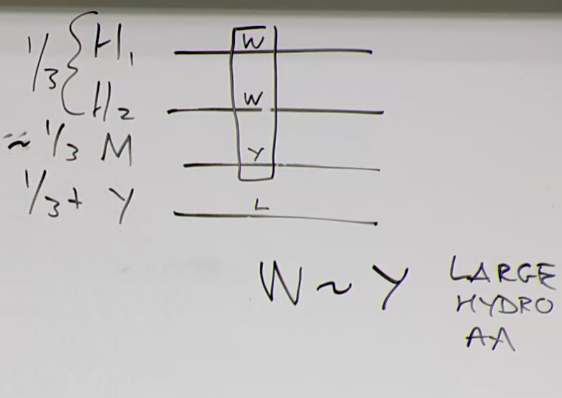 1/3 { H1 W
H2 W
~ 1/3 M Y
1/3+ Y L
W ~ Y LARGE
HYDRO
AA